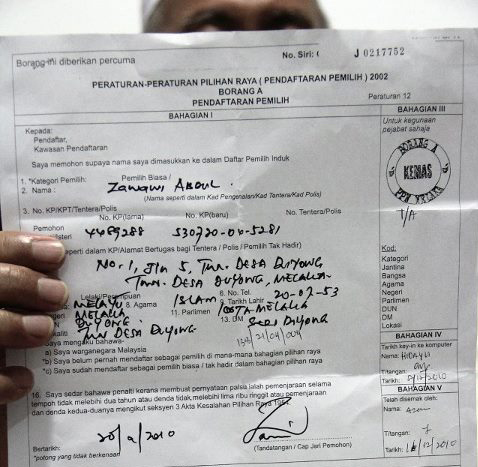 Borang ini diberikan percuma
No. Siri: J 0217752
PERATURAN-PERATURAN PILIHAN RAYA ( PENDAFTARAN PEMILIH ) 2002
BORANG A
PENDAFTARAN PEMILIH
Peraturan 12
BAHAGIAN I
BAHAGIAN III
Kepada:
Pendaftar,
Kawasan Pendaftaran
Untuk kegunaan
pejabat sahaja
Saya memohon supaya nama saya dimasukkan ke dalam Daftar Pemilih Induk
BORANG A
KEMAS
1. *Kategori Pemilih: Pemilih Biasa /
2. Nama : Zawawi Abdul.
(Nama seperti dalam Kad Pengenalan/Kad Tentera/Kad Polis)
3. No. KP/KPT/Tentera/Polis
No. KP(lama) No. KP(baru) No. Tentera/Polis
T/A
Pemohon 4489288 530720-04-5281
seperti dalam KP/Alamat Bertugas bagi Tentera / Polis / Pemilih Tak Hadir)
No. 1, Jln 5, Tmn. Desa Duyong,
Tmn. Desa Duyong, Melaka.
Kod:
Kategori
Jantina
Bangsa
Agama
Negeri
Parlimen
DUN
DM
Lokaliti
Lelaki/Perempuan 9. No. Tel.
Melayu 8. Agama Islam Tarikh Lahir 20-07-53
Melaka 11. Parlimen Kota Melaka
Duyong 13. DM Seri Duyong
Tmn Desa Duyong
Saya mengaku bahawa-
a) Saya warganegara Malaysia
*b) Saya belum pernah mendaftar sebagai pemilih di mana-mana bahagian pilihan raya
*c) Saya sudah mendaftar sebagai pemilih biasa / tak hadir dalam bahagian pilihan raya
BAHAGIAN IV
Tarikh key-in ke komputer
Nama:
Titangan:
Tarikh: 2010
16. Saya sedar bahawa penalti kerana membuat pernyataan palsu ialah pemenjaraan selama
tempoh tidak melebihi dua tahun atau denda tidak melebihi lima ribu ringgit atau pemenjaraan
dan denda kedua-duanya mengikut seksyen 3 Akta Kesalahan Pilihan Raya
BAHAGIAN V
Telah disemak oleh:
Nama:
Titangan:
Tarikh: /12/2010
Bertarikh: 2010
(Tandatangan / Cap Jari Pemohon)
*potong yang tidak berkenaan